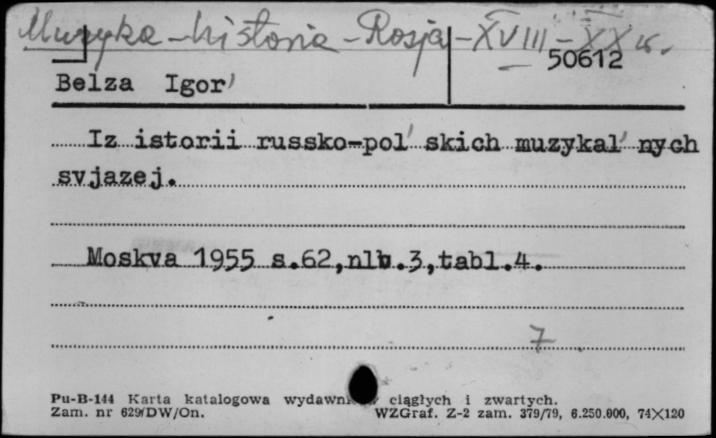 Muzyka - historia - Rosja - XVIII - XX w.
50612
Belza Igor'
Iz istorii russko-pol'skich muzykal'nych
svjazej.
Moskva 1955 s.62,nlb.3,tabl.4.
7
Pu-B-144 Karta katalogowa wydawni ciągłych i zwartych.
Zam. nr 629/DW/On. WZGraf. Z-2 zam. 379/79, 6.250.000, 74×120